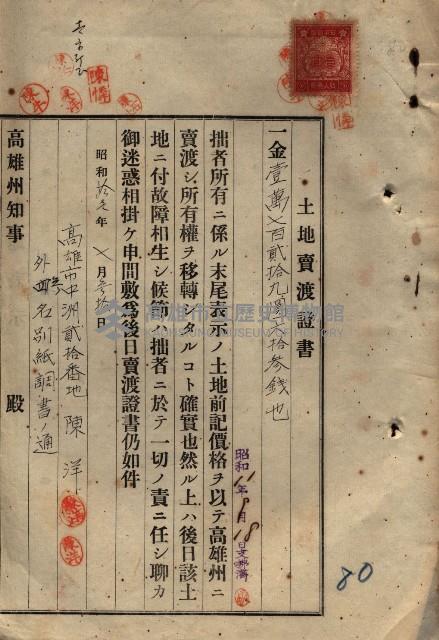 土地賣渡證書
一金壹萬七百貳拾九圓六拾參錢也
拙者所有ニ係ル末尾表示ノ土地前記價格ヲ以テ高雄州ニ
賣渡シ所有權ヲ移轉シタルコト確實也然ル上ハ後日該土
地ニ付故障相生シ候節ハ拙者ニ於テ一切ノ責ニ任シ聊カ
御迷惑相掛ケ申間敷爲後日賣渡證書仍如件
昭和拾壱年七月參拾日
高雄市中洲貳拾番地 陳洋
外四名別紙調書ノ通
高雄州知事 殿
昭和11年8月18日
80
高雄市立歷史博物館